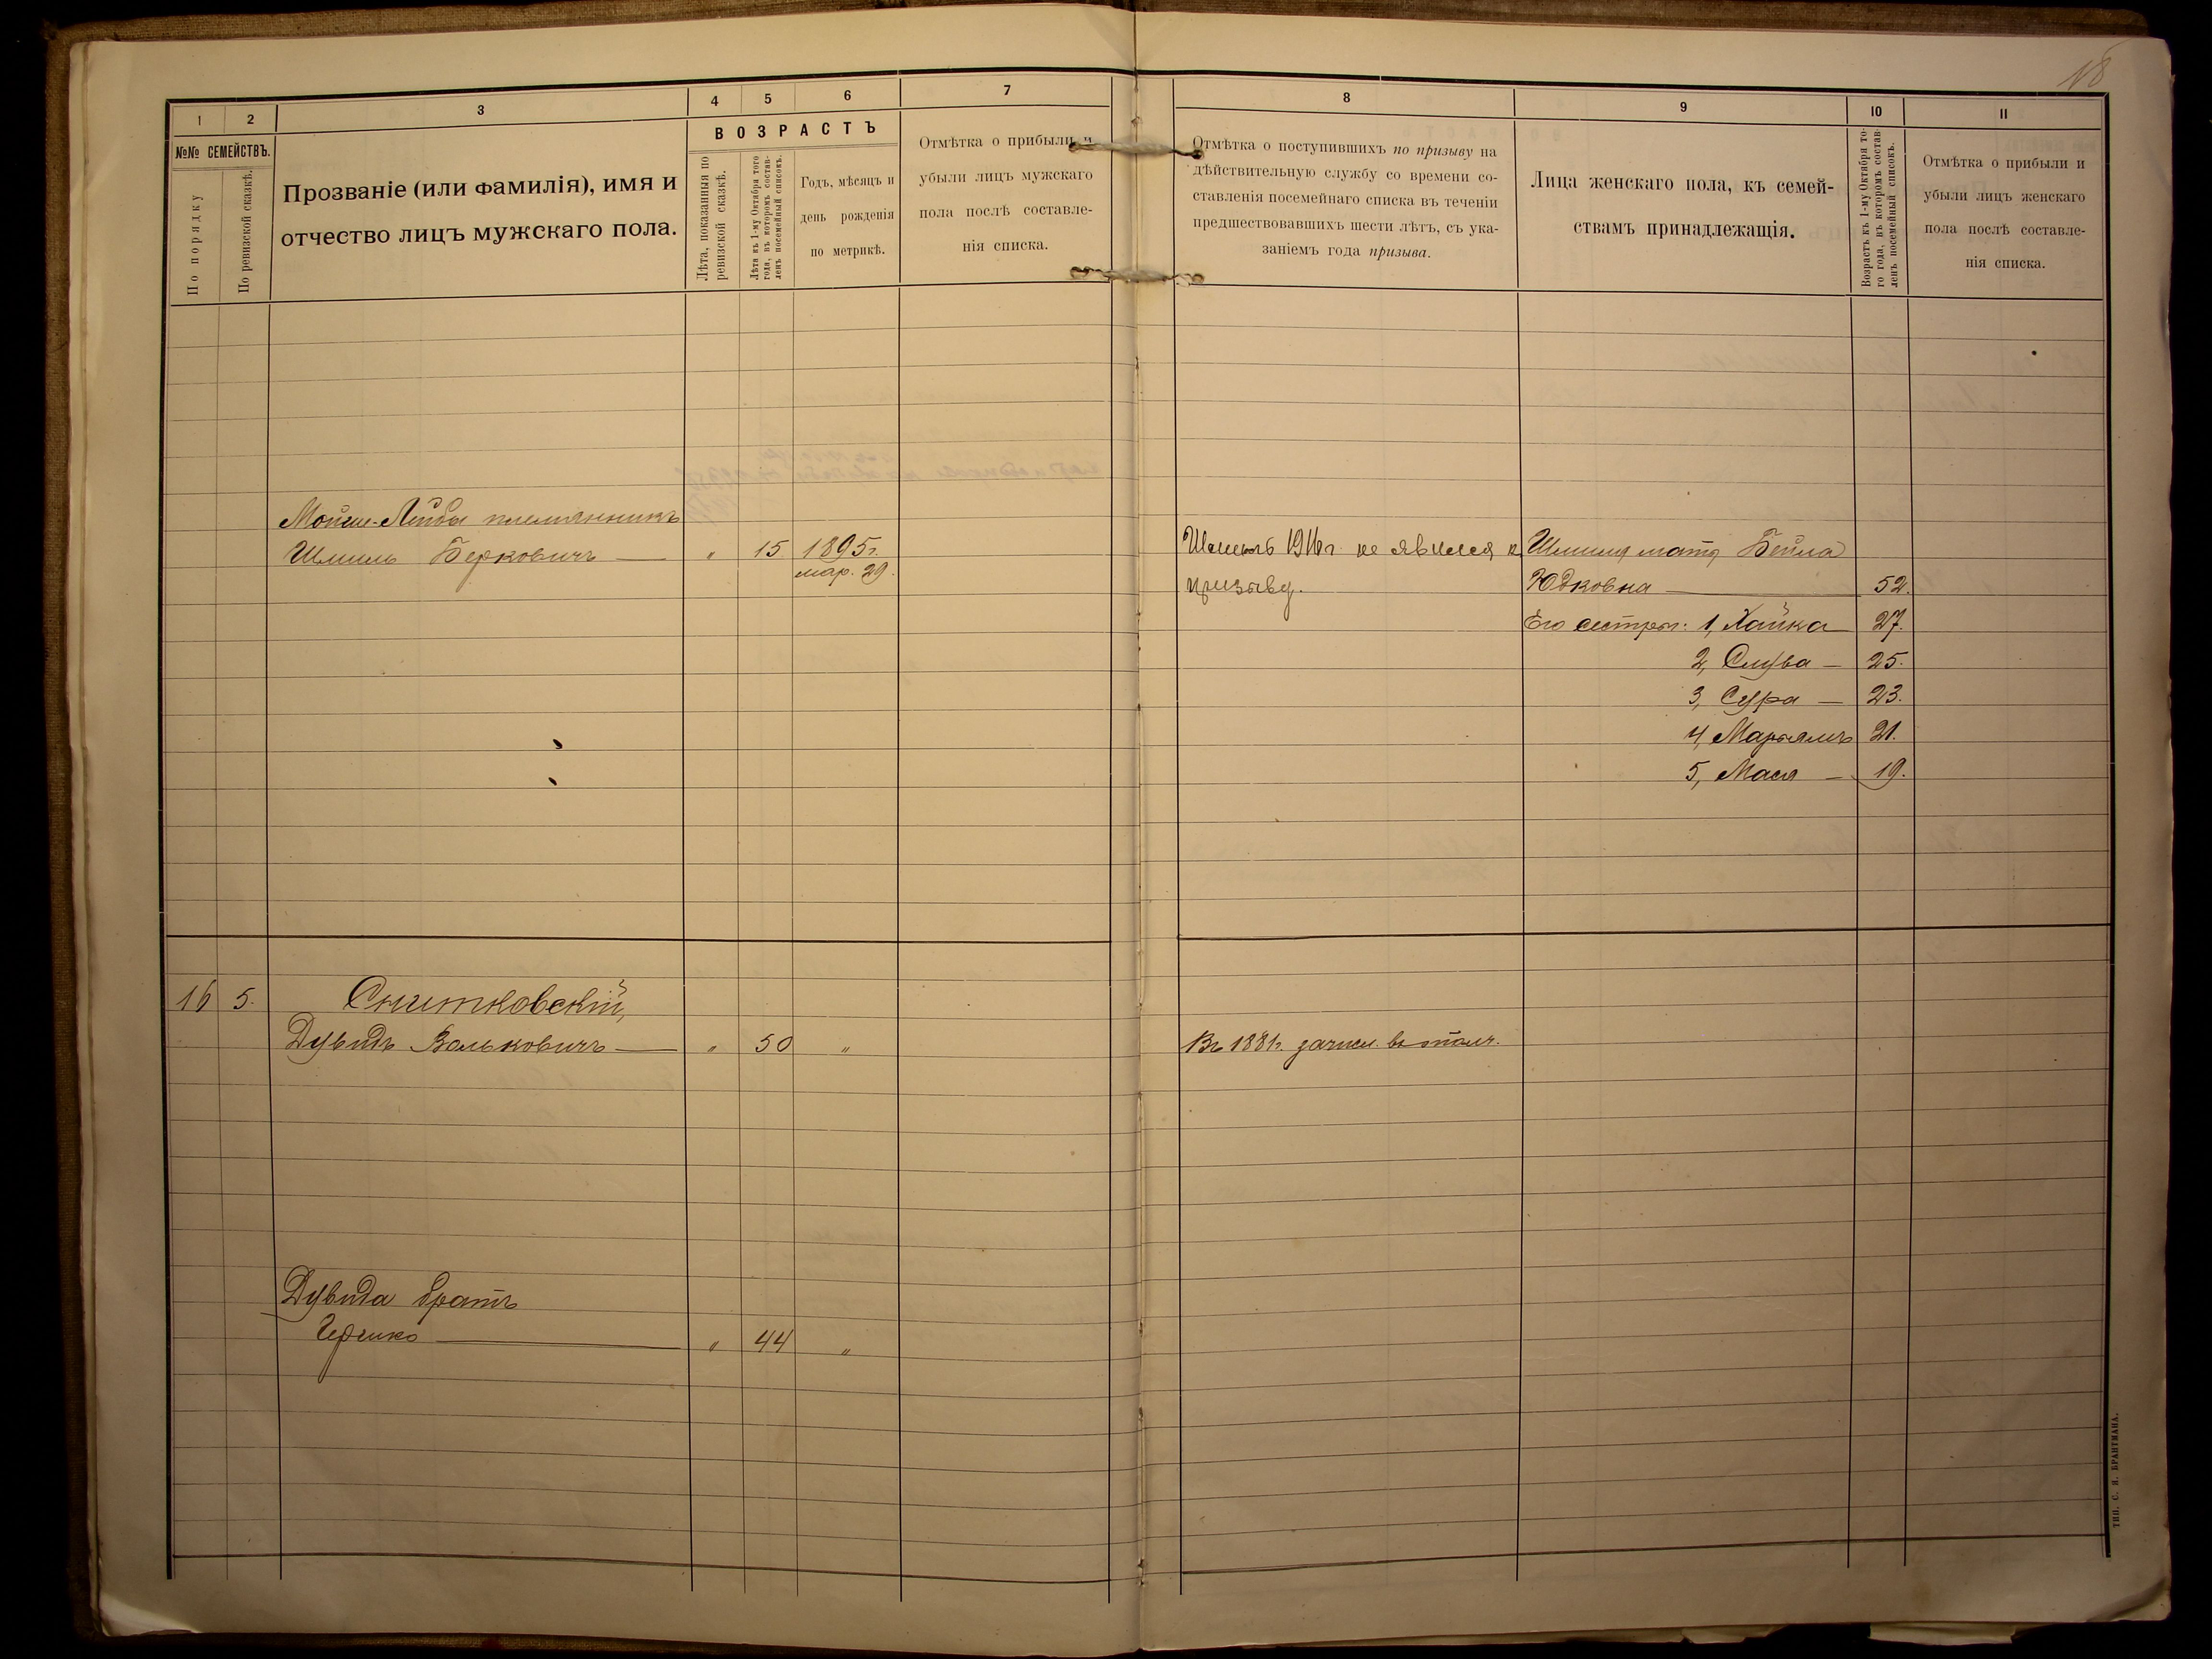 18
1
2
3
4
5
6
7
8
9
10
11
№№ СЕМЕЙСТВЪ.
По порядку
По ревизской сказкѣ.
Прозваніе (или фамилія), имя и
отчество лицъ мужскаго пола.
ВОЗРАСТЪ
Лѣта, показанныя по
ревизской сказкѣ.
Лѣта къ 1-му Октября того
года, въ которомъ состав-
ленъ посемейный списокъ.
Годъ, мѣсяцъ и
день рожденія
по метрикѣ.
Отмѣтка о прибыли и
убыли лицъ мужскаго
пола послѣ составле-
нія списка.
Отмѣтка о поступившихъ по призыву на
дѣйствительную службу со времени со-
ставленія посемейнаго списка въ теченіи
предшествовавшихъ шести лѣтъ, съ ука-
заніемъ года призыва.
Лица женскаго пола, къ семей-
ствамъ принадлежащія.
Возрастъ къ 1-му Октября то-
го года, въ которомъ состав-
ленъ посемейный списокъ.
Отмѣтка о прибыли и
убыли лицъ женскаго
пола послѣ составле-
нія списка.
Мойше-Лейбы племянникъ
Шмиль Берковичъ — " 15 1895г.
мар. 29.
1916г. не явился к
призыву.
Шмиля мать Бейла
Юдковна — 52.
Его сестры: 1, Хайка 27.
2, Слува — 25.
3, Сура — 23.
4, Марьямъ 21.
5, Мася — 19.
16 5. Снитковскій,
Дувидъ Вольковичъ — " 50 "
Въ 1881г. зачисл. въ ополч.
Дувида братъ
Гершко — " 44 "
ТИП. С. Я. БРАНТМАНА.